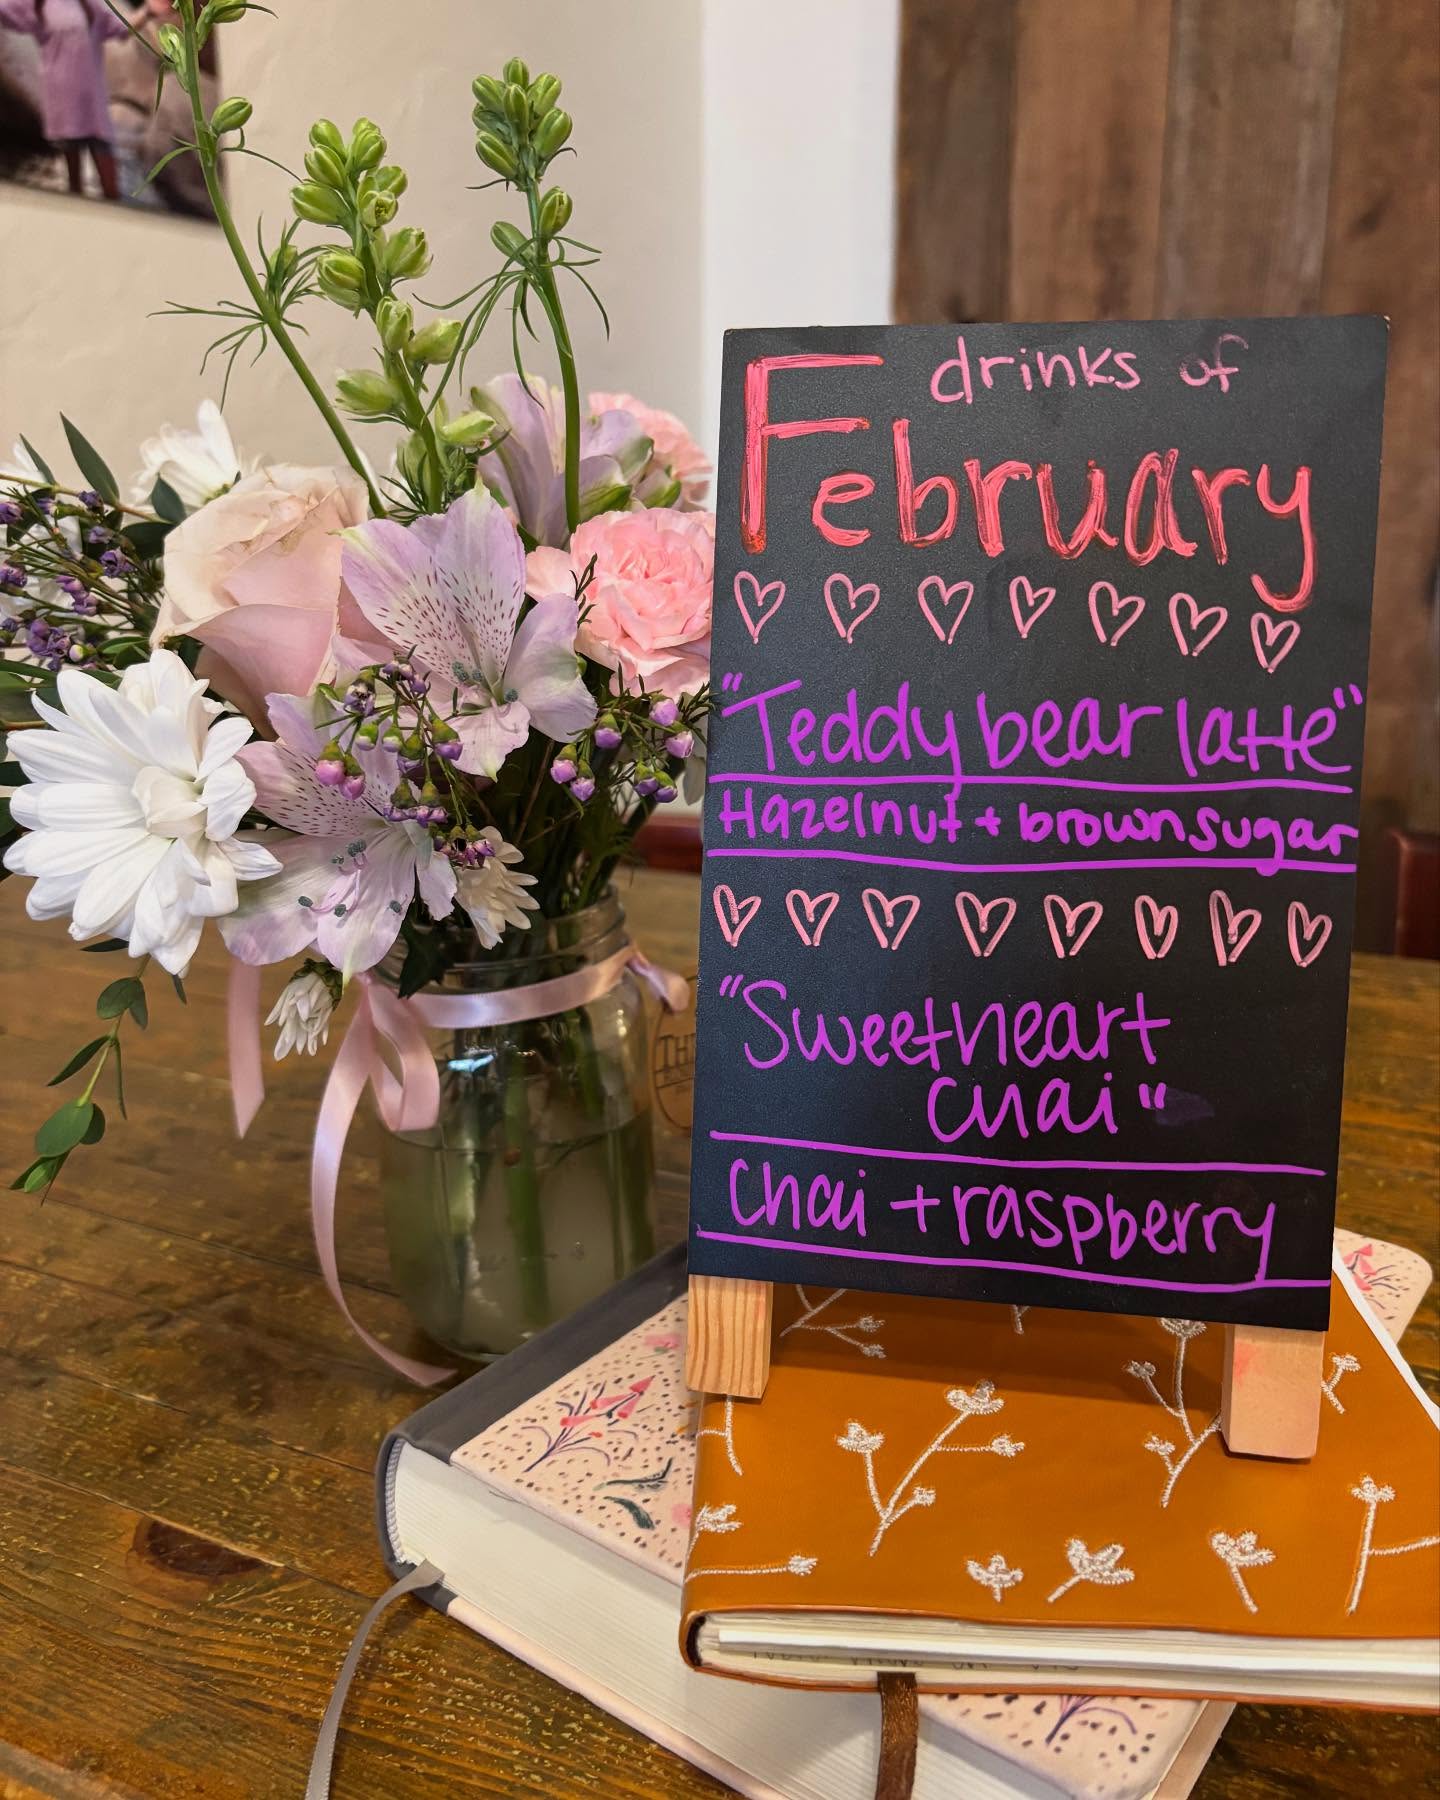 drinks of
February
"Teddy bear latte"
Hazelnut + brown sugar
"Sweetheart
chai"
Chai + raspberry
TH